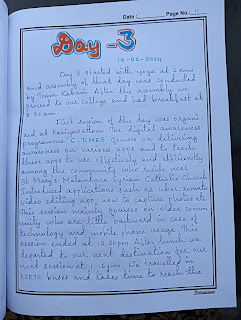 Date :
Page No :
Day - 3
14-02-2024
Day 3 started with yoga at 6 am
and assembly of that day was conducted
by Team Kabani. After the assembly we
proced to our college and had breakfast at
8:30 am.
First session of the day was organi-
sed at Kariyavattom. The digital awareness
programme E-TIMES focuses on delivering
awareness on various apps and to teach
these apps to use effectively and efficiently
among the community who reside near
St. Mary's Malankara Syrian Catholic Church
Introduced applications such as uber, zomato
video editing app, how to capture photos etc.
This session mainly focuses on older comm
unity who are little backward in case of
technology and mobile phone usage. This
session ended at 12:30pm After lunch we
departed to our next destination for our
next session at 1:15pm. We travelled in
KSRTC buses and takes time to reach the